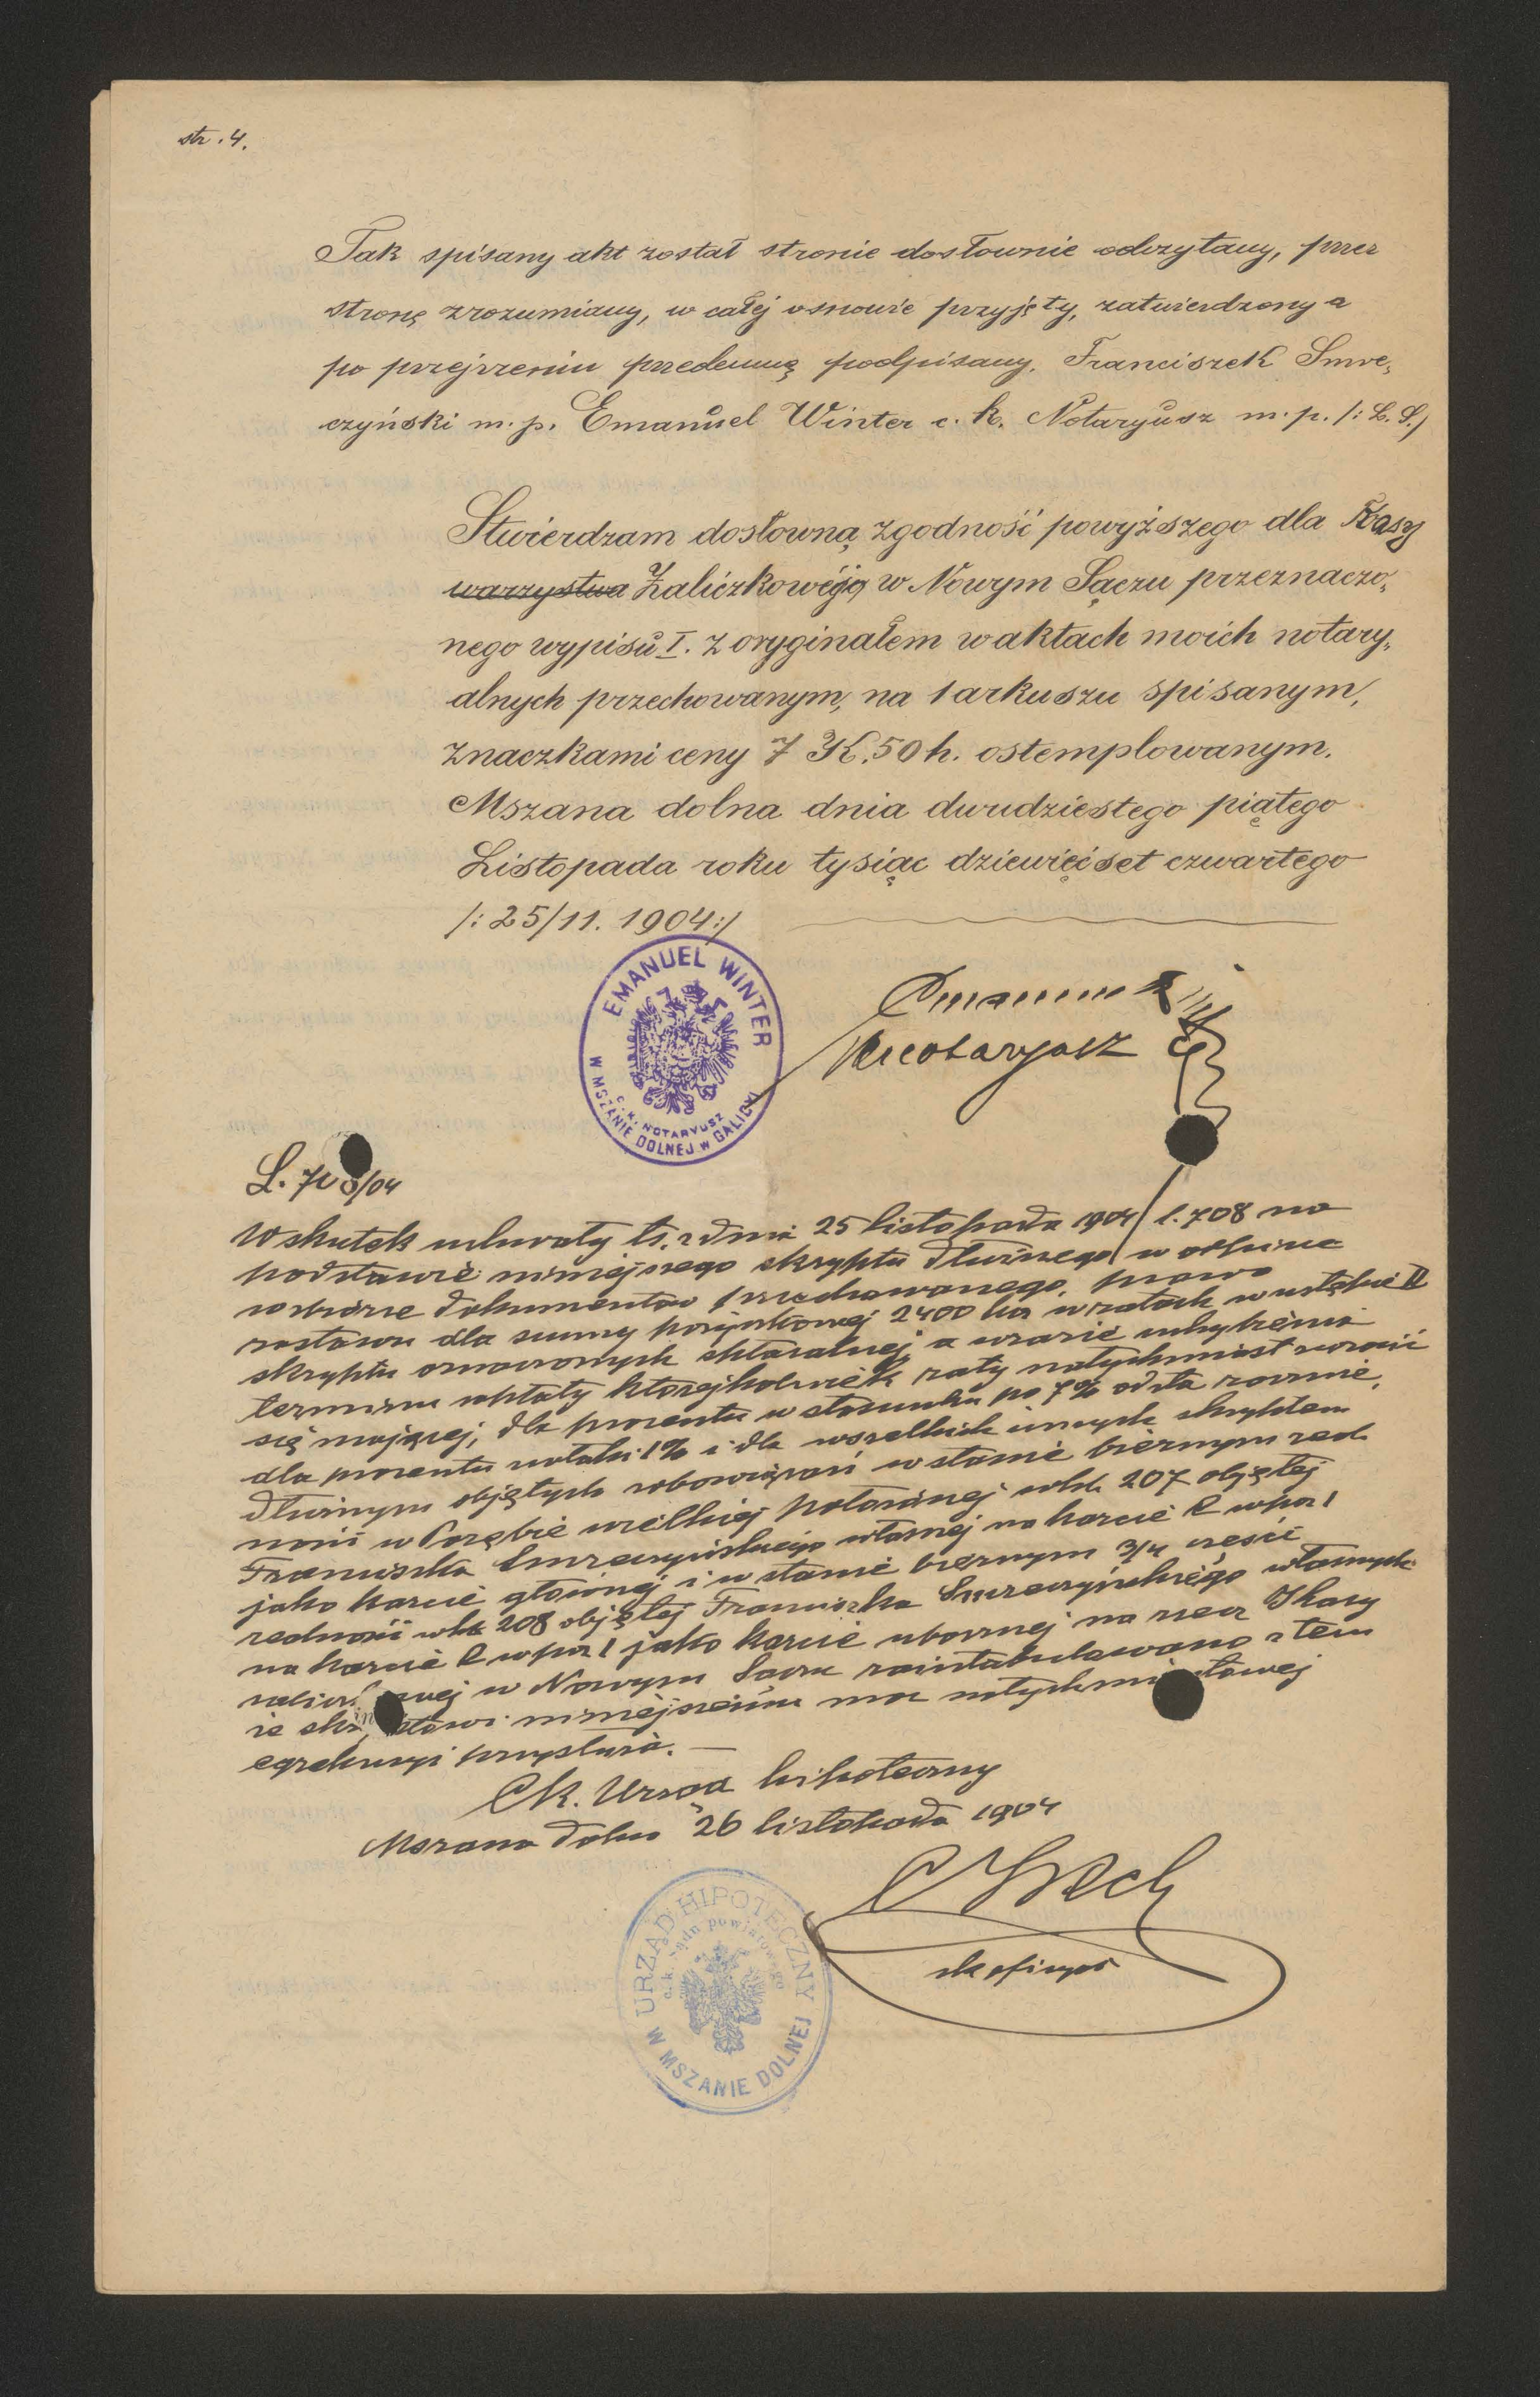 str. 4.
Tak spisany akt został stronie dosłownie odczytany, przez
stronę zrozumiany, w całej osnowie przyjęty, zatwierdzony a
po przejrzeniu przedemną podpisany. Franciszek Smre„
czyński m. p. Emanuel Winter c. k. Notaryusz m. p. /: L. S./
Stwierdzam dosłowną zgodność powyższego dla Kasy
warzystwa Zaliczkowej w Nowym Sączu przeznaczo„
nego wypisu I. z oryginałem w aktach moich notary„
alnych przechowanym, na 1 arkuszu spisanym,
znaczkami ceny 7 K. 50 h. ostemplowanym.
Mszana dolna dnia dwudziestego piątego
Listopada roku tysiąc dziewięćset czwartego
/: 25/11. 1904:/
EMANUEL WINTER
C. K. NOTARYUSZ
W MSZANIE DOLNEJ W GALICYI
L. 708/04
Wskutek uchwały ts. z dnia 25 listopada 1904 l. 708 na
podstawie niniejszego skryptu dłużnego w odpisie
w zbiorze dokumentów przechowanego, prawo
zastawu dla sumy pożyczkowej 2400 kor w ratach w ustępie II
skryptu oznaczonych spłacalnej, a w razie uchybienia
terminu wpłaty którejkolwiek raty natychmiast zwrócić
się mającej, dla procentu w stosunku po 7% od sta rocznie,
dla procentu zwłoki 1% i dla wszelkich innych skryptem
dłużnym objętych zobowiązań w stanie biernym real
ności w Porębie wielkiej położonej whl. 207 objętej
Franciszka Smreczyńskiego własnej na karcie C w poz 1
jako karcie głównej i w stanie biernym 3/4 części
realności whl. 208 objętej Franciszka Smreczyńskiego własnych
na karcie C w poz 1 jako karcie ubocznej na rzecz Kasy
zaliczkowej w Nowym Sączu zaintabulowano z tem
że skryptowi niniejszemu moc natychmiastowej
egzekucyi przysłuża. —
Ck. Urząd hipoteczny
Mszana dolna 26 listopada 1904
URZĄD HIPOTECZNY
c. k. Sądu powiatowego
W MSZANIE DOLNEJ